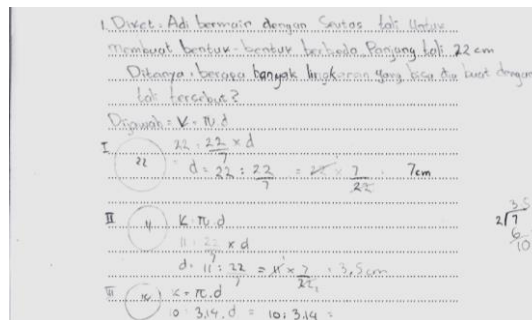 1. Diket : Adi bermain dengan Seutas tali Untuk
membuat bentuk-bentuk berbeda. Panjang tali 22 cm
Ditanya : berapa banyak lingkaran yang bisa dia buat dengan
tali tersebut?
Dijawab = K = π.d
I 22 22 = 22/7 x d
d = 22 : 22/7 = 22 x 7/22 = 7cm
II 11 K = π.d
11 = 22/7 x d
d = 11 : 22/7 = 11 x 7/22 = 3,5 cm
2 √7 3,5
6
10
III 10 K = π.d
10 = 3,14 . d = 10 : 3,14 =